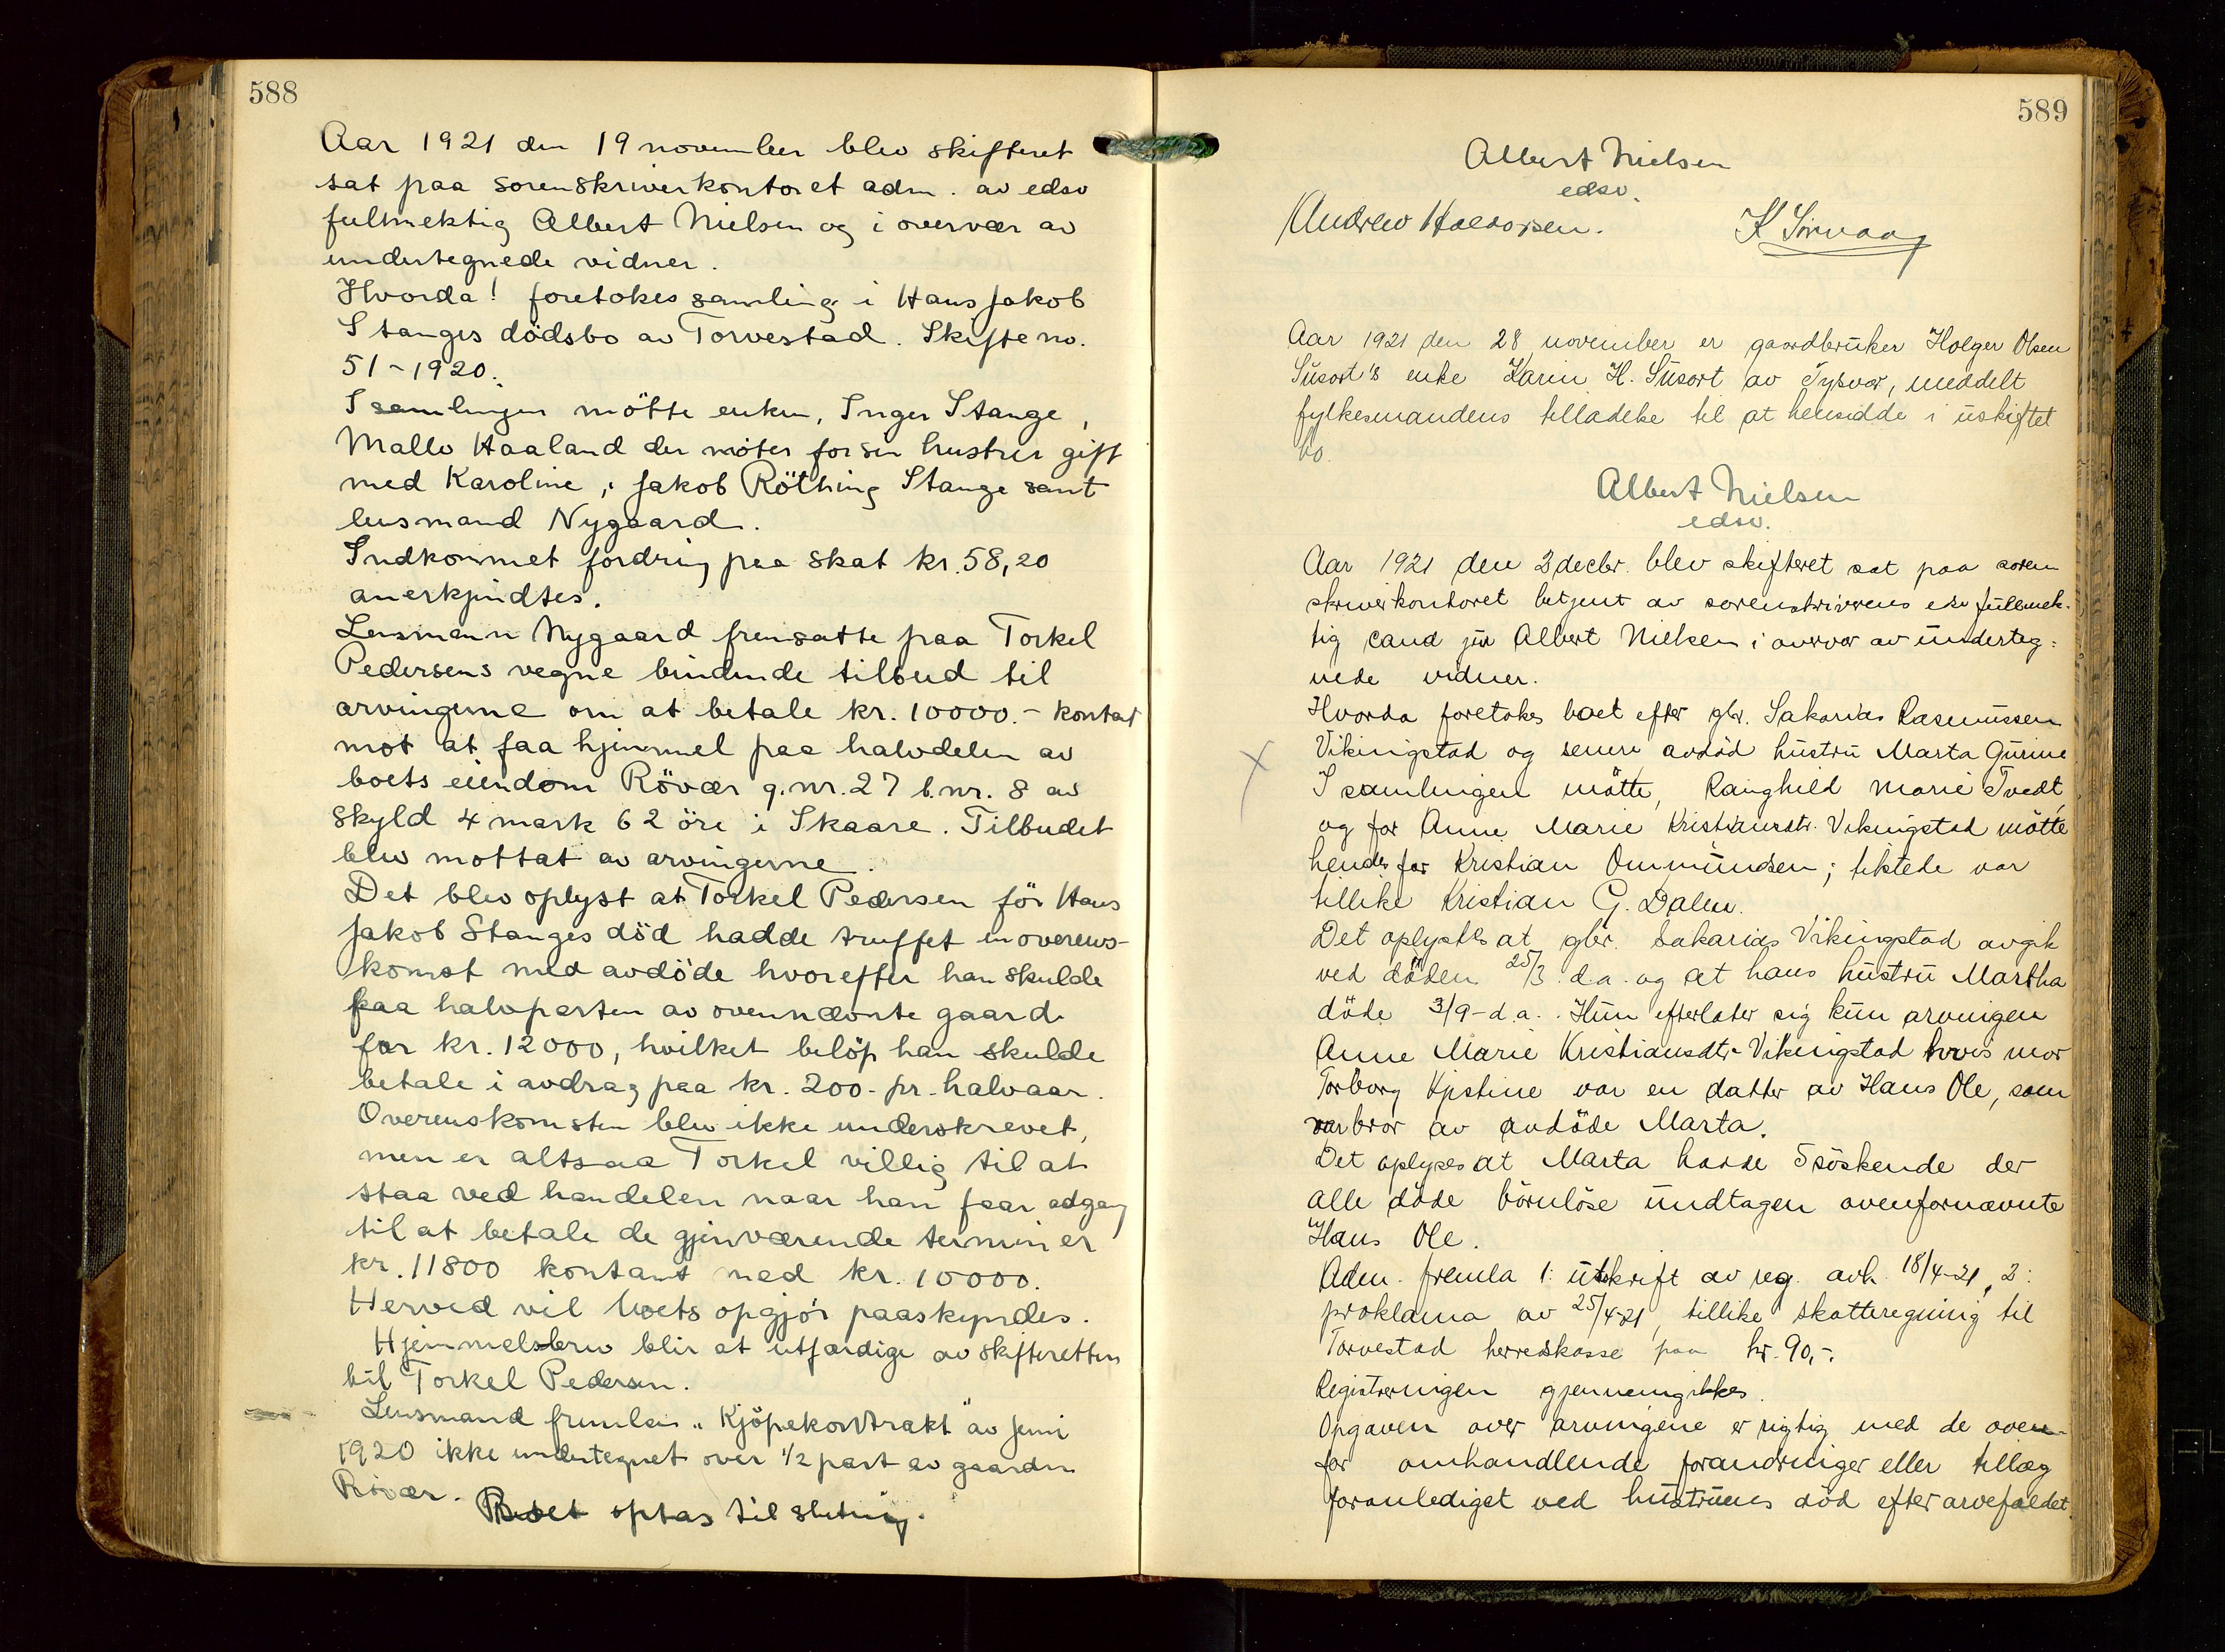 588
Aar 1921 den 19 november blev skifteret
sat paa sorenskriverkontoret adm. av edsv
fulmektig Albert Nielsen og i overvær av
undertegnede vidner.
Hvorda! foretokes samling i Hans Jakob
Stanges dödsbo av Torvestad. Skifte no.
51-1920.
I samlingen mötte enken, Inger Stange,
Malle Haaland der möter for sin hustru gift
med Karoline, Jakob Röthing Stange samt
lensmand Nygaard.
Indkommet fordring paa skat kr. 58,20
anerkjendtes.
Lensmann Nygaard fremsatte paa Torkel
Pedersens vegne bindende tilbud til
arvingerne om at betale kr. 10000.- kontat
mot at faa hjemmel paa halvdelen av
boets eiendom Rövær g.nr. 27 b.nr. 8 av
skyld 4 mark 62 öre i Skaare. Tilbudet
blev mottat av arvingerne.
Det blev oplyst at Torkel Pedersen för Hans
Jakob Stanges död hadde truffet en overens-
komst med avdöde hvorefter han skulde
faa halvparten av ovennævnte gaard
for kr. 12000, hvilket belöp han skulde
betale i avdrag paa kr. 200.- pr. halvaar.
Overenskomsten blev ikke underskrevet,
men er altsaa Torkel villig til at
staa ved handelen naar han faar adgang
til at betale de gjenværende terminer
kr. 11800 kontant med kr. 10000.
Herved vil boets opgjör paaskyndes.
Hjemmelsbrev blir at utfærdige av skifteretten
til Torkel Pedersen.
Lensmand fremla "Kjöpekontrakt" av juni
1920 ikke undertegnet over 1/2 part av gaarden
Rövær.
Boet optas til slutning.
589
Albert Nielsen
edsv.
Andrew Haldorsen. K Sörvaag
Aar 1921 den 28 november er gaardbruker Holger Olsen
Susort's enke Karin H. Susort av Tysvær, meddelt
fylkesmandens tilladelse til at hensidde i uskiftet
bo.
Albert Nielsen
edsv.
Aar 1921 den 2 decbr. blev skifteret sat paa soren
skriverkontoret betjent av sorenskriverens edsv fullmek-
tig cand jur Albert Nielsen i overvær av underteg-
nede vidner.
Hvorda foretokes boet efter gbr. Sakarias Rasmussen
Vikingstad og senere avdöd hustru Marta Gurine
X I samlingen mötte, Ranghild Marie Tvedt,
og for Anne Marie Kristiansdtr. Vikingstad mötte
hendes far Kristian Ommundsen; tilstede var
tillike Kristian G. Dalen.
Det oplystes at gbr. Sakarias Vikingstad avgik
ved döden 25/3 d.a. og at hans hustru Martha
döde 3/9 - d.a. Hun efterlater sig kun arvingen
Anne Marie Kristiansdtr. Vikingstad hvis mor
Torborg Kjstine var en datter av Hans Ole, som
var bror av avdöde Marta.
Det oplyses at Marta hadde 5 söskende der
alle döde börnlöse undtagen ovenfornævnte
Hans Ole.
Adm. fremla 1: utskrift av reg. avh. 18/4-21, 2:
proklama av 25/4-21, tillike skatteregning til
Torvestad herredskasse paa kr. 90,-.
Registreringen gjennemgikkes.
Opgaven over arvingene er rigtig med de oven-
for omhandlende forandringer eller tillæg
foranlediget ved hustruens död efter arvefaldet.